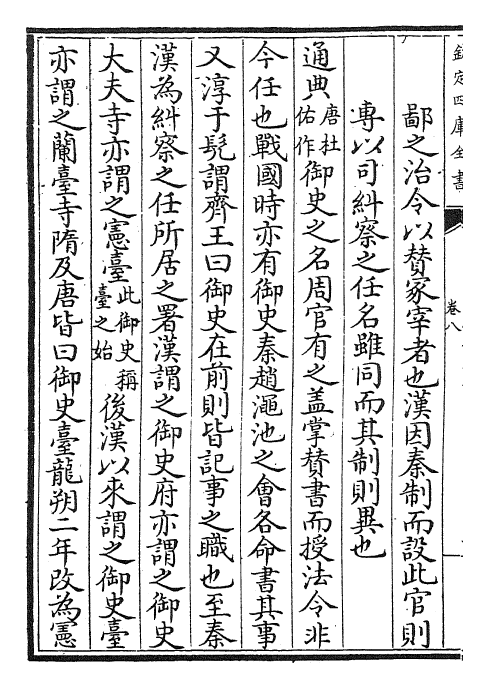 欽定四庫全書
卷八
鄙之治令以賛冢宰者也漢因秦制而設此官則
專以司糾察之任名雖同而其制則異也
通典唐杜佑作御史之名周官有之盖掌賛書而授法令非
今任也戰國時亦有御史秦趙澠池之會各命書其事
又淳于髠謂齊王曰御史在前則皆記事之職也至秦
漢為糾察之任所居之署漢謂之御史府亦謂之御史
大夫寺亦謂之憲臺此御史稱臺之始後漢以來謂之御史臺
亦謂之蘭臺寺隋及唐皆曰御史臺龍朔二年改為憲